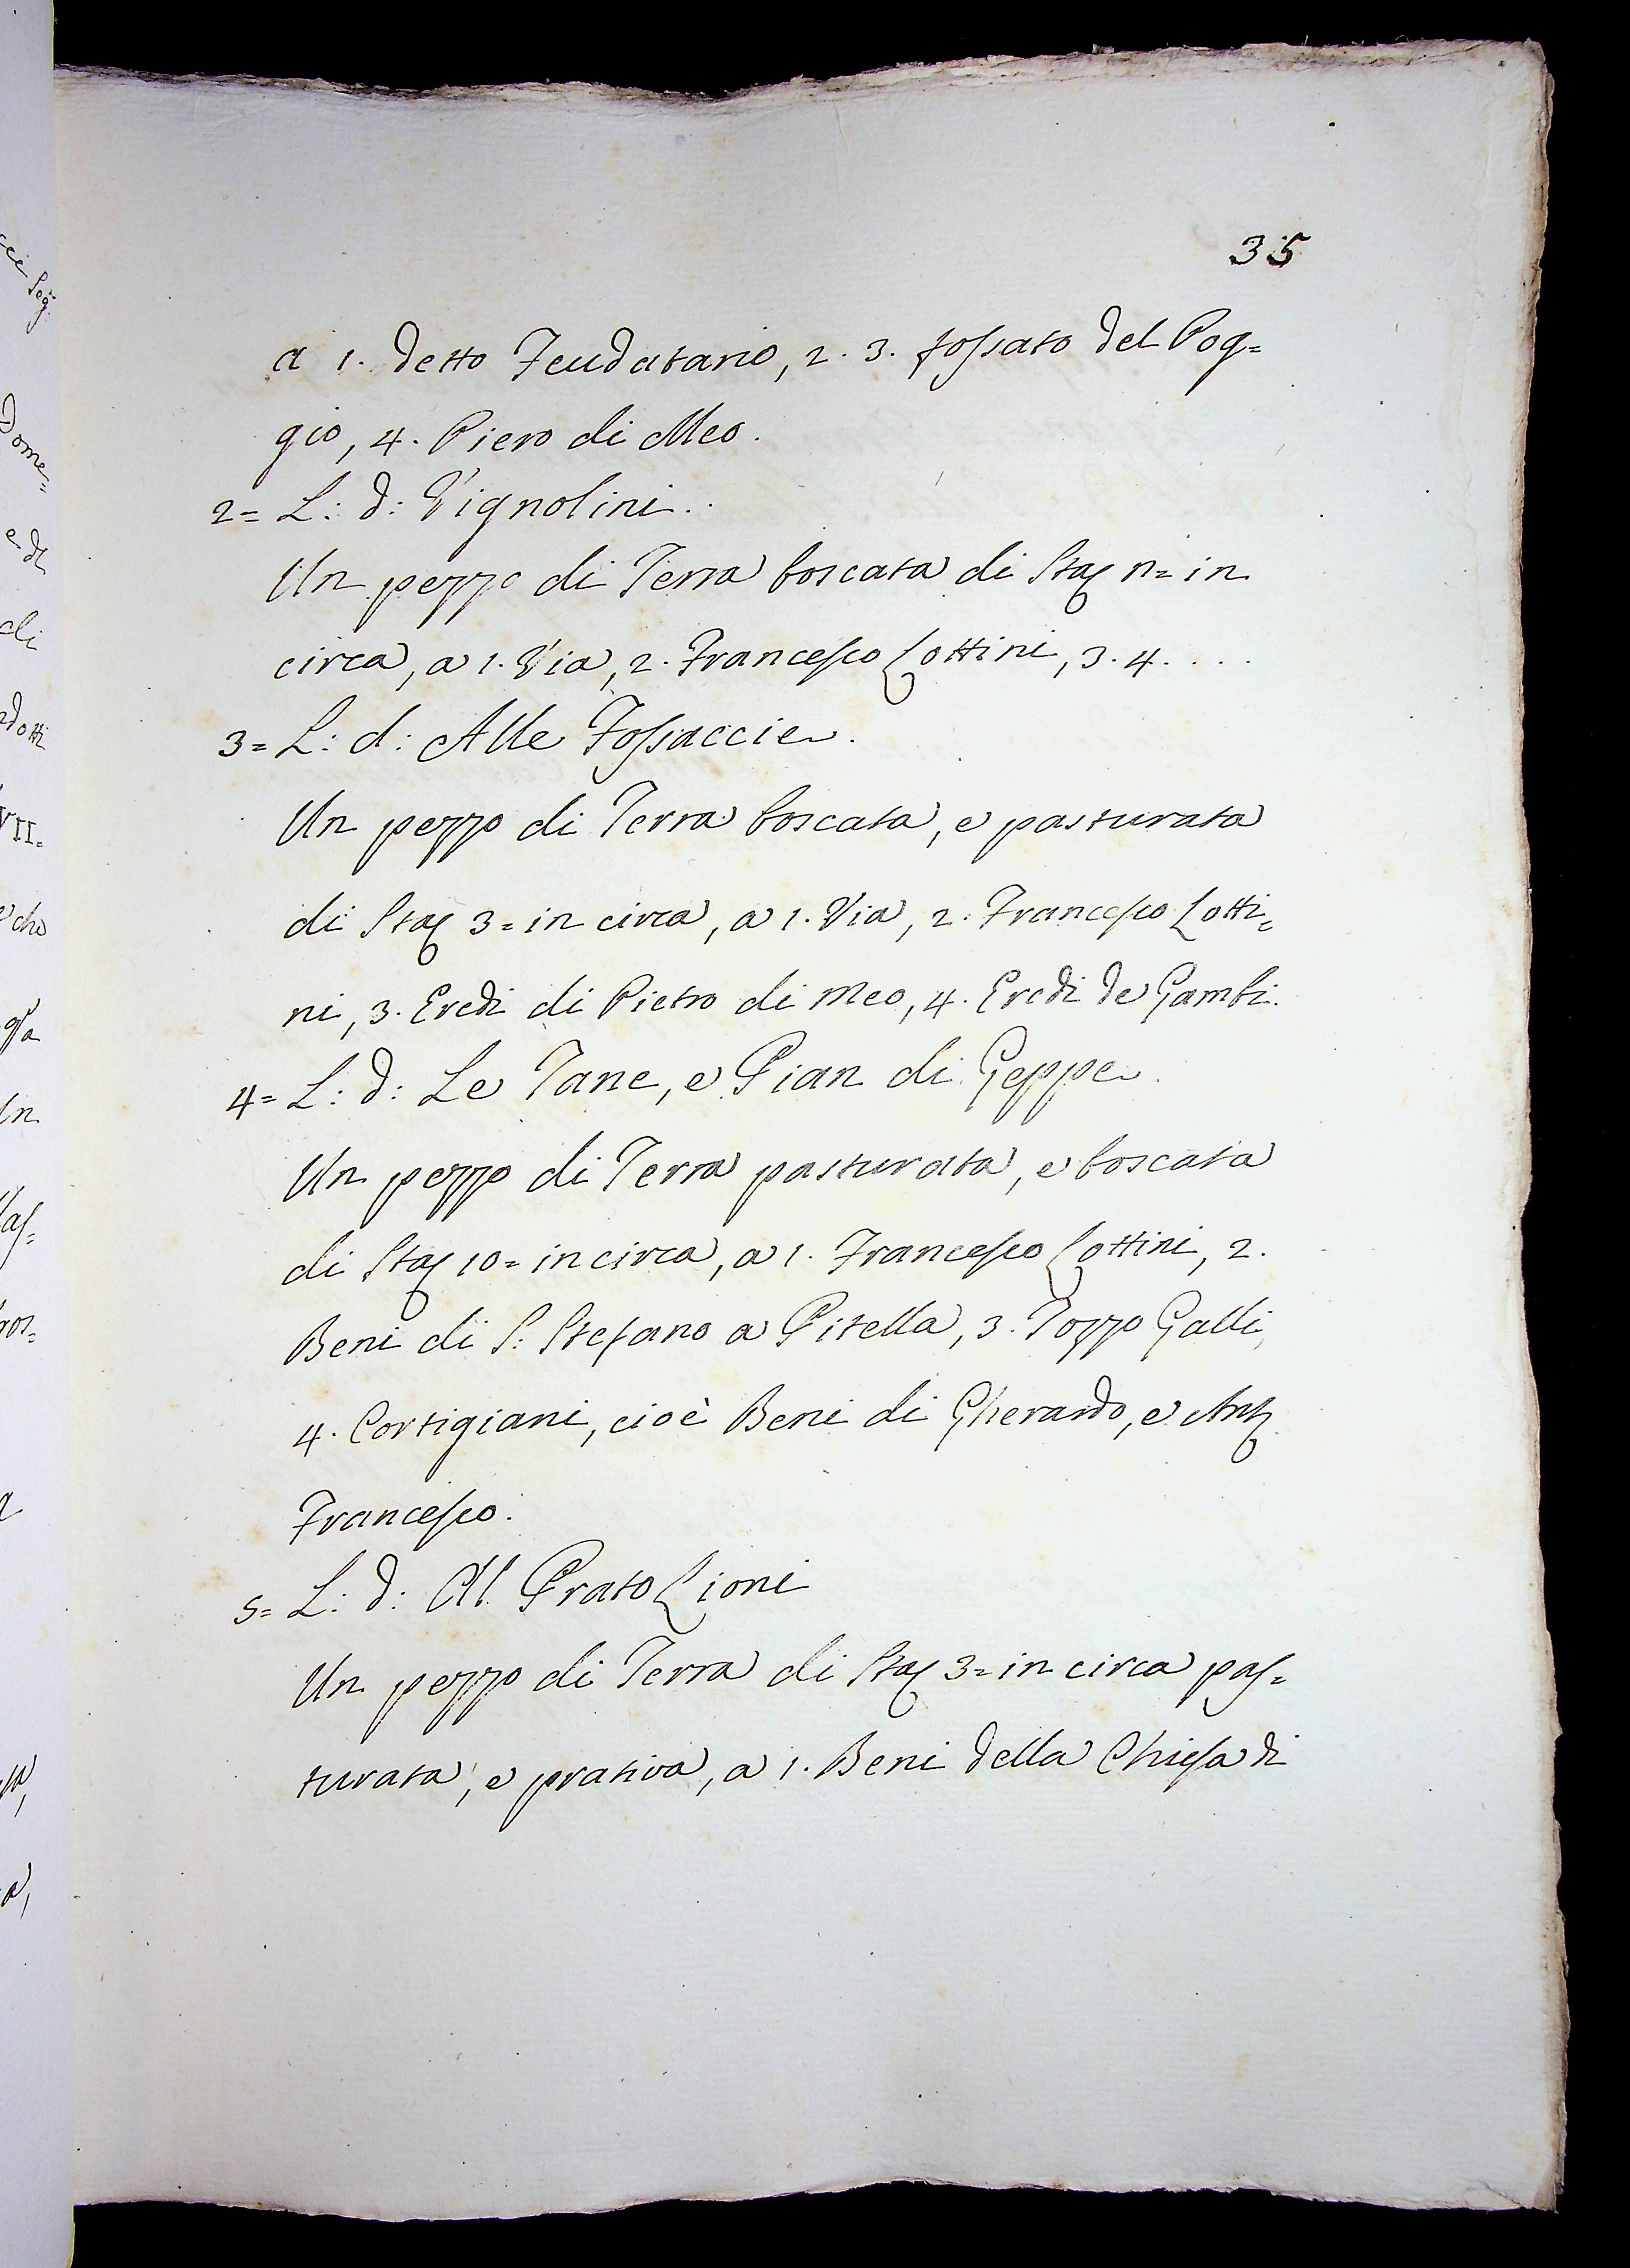 35
a 1. detto Feudatario, 2. 3. fossato del Pog=
gio, 4. Piero di Meo.
2= L: d: Vignolini..
Un pezzo di Terra boscata di Staj n= in
circa, a 1. Via, 2. Francesco Lottini, 3. 4. . . .
3= L: d: Alle Fossaccie.
Un pezzo di Terra boscata, e pasturata
di Staj 3= in circa, a 1. Via, 2. Francesco Lotti=
ni, 3. Eredi di Pietro di Meo, 4. Eredi de Gambi.
4= L: d: Le Tane, e Pian di Geppe.
Un pezzo di Terra pasturata, e boscata
di Staj 10= in circa, a 1. Francesco Lottini, 2.
Beni di S: Stefano a Pitella, 3. Pozzo Galli,
4. Cortigiani, cioè Beni di Gherardo, e Ant
Francesco.
5= L: d: Al Prato Lioni
Un pezzo di Terra di Staj 3= in circa pas=
turata, e prativa, a 1. Beni della Chiesa di